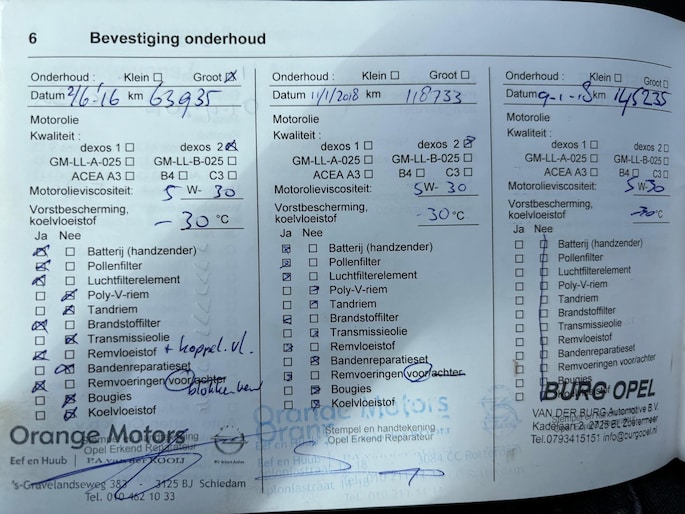 6 Bevestiging onderhoud
Onderhoud : Klein Groot
Datum 2/6-'16 km 63935
Motorolie
Kwaliteit :
dexos 1 dexos 2
GM-LL-A-025 GM-LL-B-025
ACEA A3 B4 C3
Motorolieviscositeit: 5 W- 30
Vorstbescherming,
koelvloeistof -30 °C
Ja Nee
Batterij (handzender)
Pollenfilter
Luchtfilterelement
Poly-V-riem
Tandriem
Brandstoffilter
Transmissieolie
Remvloeistof + koppel.vl.
Bandenreparatieset
Remvoeringen voor/achter
Bougies
Koelvloeistof
Stempel en handtekening
Opel Erkend Reparateur
Orange Motors
Eef en Huub
's-Gravelandseweg 383 3125 BJ Schiedam
Tel. 010 462 10 33
Onderhoud : Klein Groot
Datum 11/1/2018 km 118733
Motorolie
Kwaliteit :
dexos 1 dexos 2
GM-LL-A-025 GM-LL-B-025
ACEA A3 B4 C3
Motorolieviscositeit: 5 W- 30
Vorstbescherming,
koelvloeistof -30 °C
Ja Nee
Batterij (handzender)
Pollenfilter
Luchtfilterelement
Poly-V-riem
Tandriem
Brandstoffilter
Transmissieolie
Remvloeistof
Bandenreparatieset
Remvoeringen voor/achter
Bougies
Koelvloeistof
Orange Motors
Stempel en handtekening
Opel Erkend Reparateur
Onderhoud : Klein Groot
Datum 9-1-18 km 145235
Motorolie
Kwaliteit :
dexos 1 dexos 2
GM-LL-A-025 GM-LL-B-025
ACEA A3 B4 C3
Motorolieviscositeit: 5 W-30
Vorstbescherming,
koelvloeistof -30 °C
Ja Nee
Batterij (handzender)
Pollenfilter
Luchtfilterelement
Poly-V-riem
Tandriem
Brandstoffilter
Transmissieolie
Remvloeistof
Bandenreparatieset
Remvoeringen voor/achter
Bougies
BURG OPEL
VAN DER BURG Automotive B.V.
Kadelaan 2, 2725 BL Zoetermeer
Tel.0793415151 info@burgopel.nl